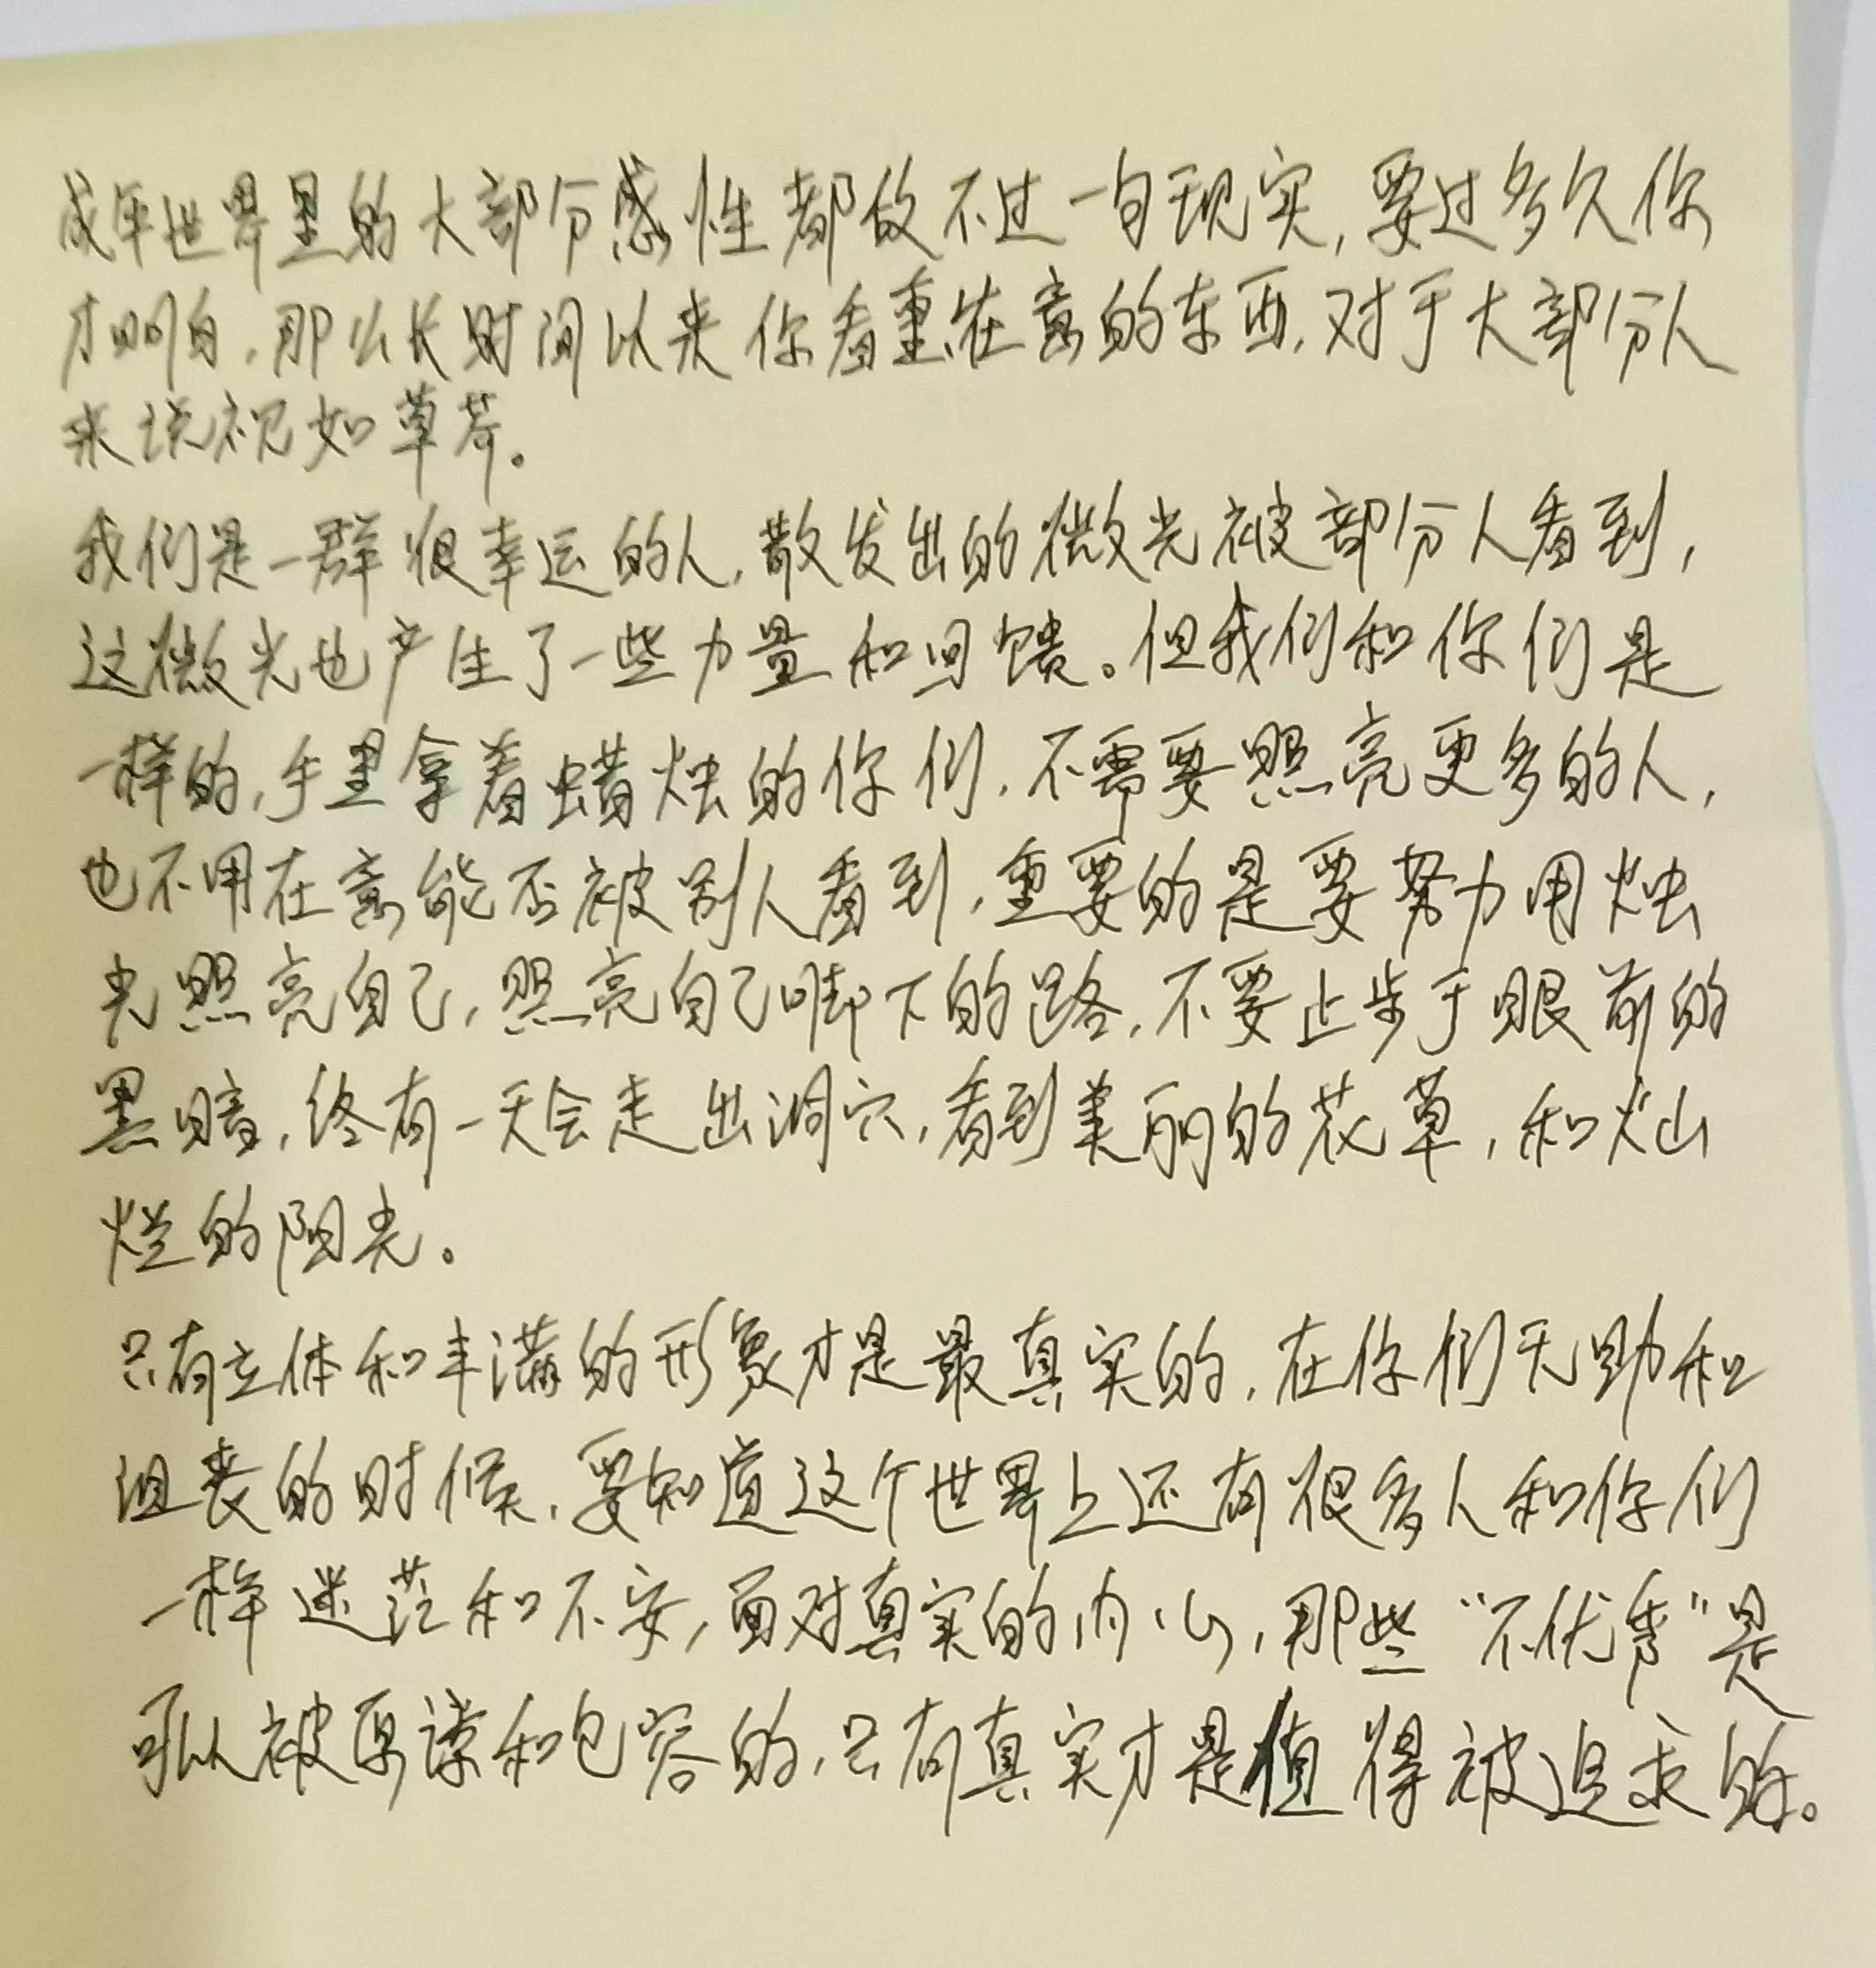 成年世界里的大部分感性都敌不过一句现实,要过多久你
才明白,那么长时间以来你看重在意的东西,对于大部分人
来说视如草芥。
我们是一群很幸运的人,散发出的微光被部分人看到,
这微光也产生了一些力量和回馈。但我们和你们是
一样的,手里拿着蜡烛的你们,不需要照亮更多的人,
也不用在意能否被别人看到,重要的是要努力用烛
光照亮自己,照亮自己脚下的路,不要止步于眼前的
黑暗,终有一天会走出洞穴,看到美丽的花草,和灿
烂的阳光。
只有立体和丰满的形象才是最真实的,在你们无助和
沮丧的时候,要知道这个世界上还有很多人和你们
一样迷茫和不安,面对真实的内心,那些“不优秀”是
可以被原谅和包容的,只有真实才是值得被追求的。